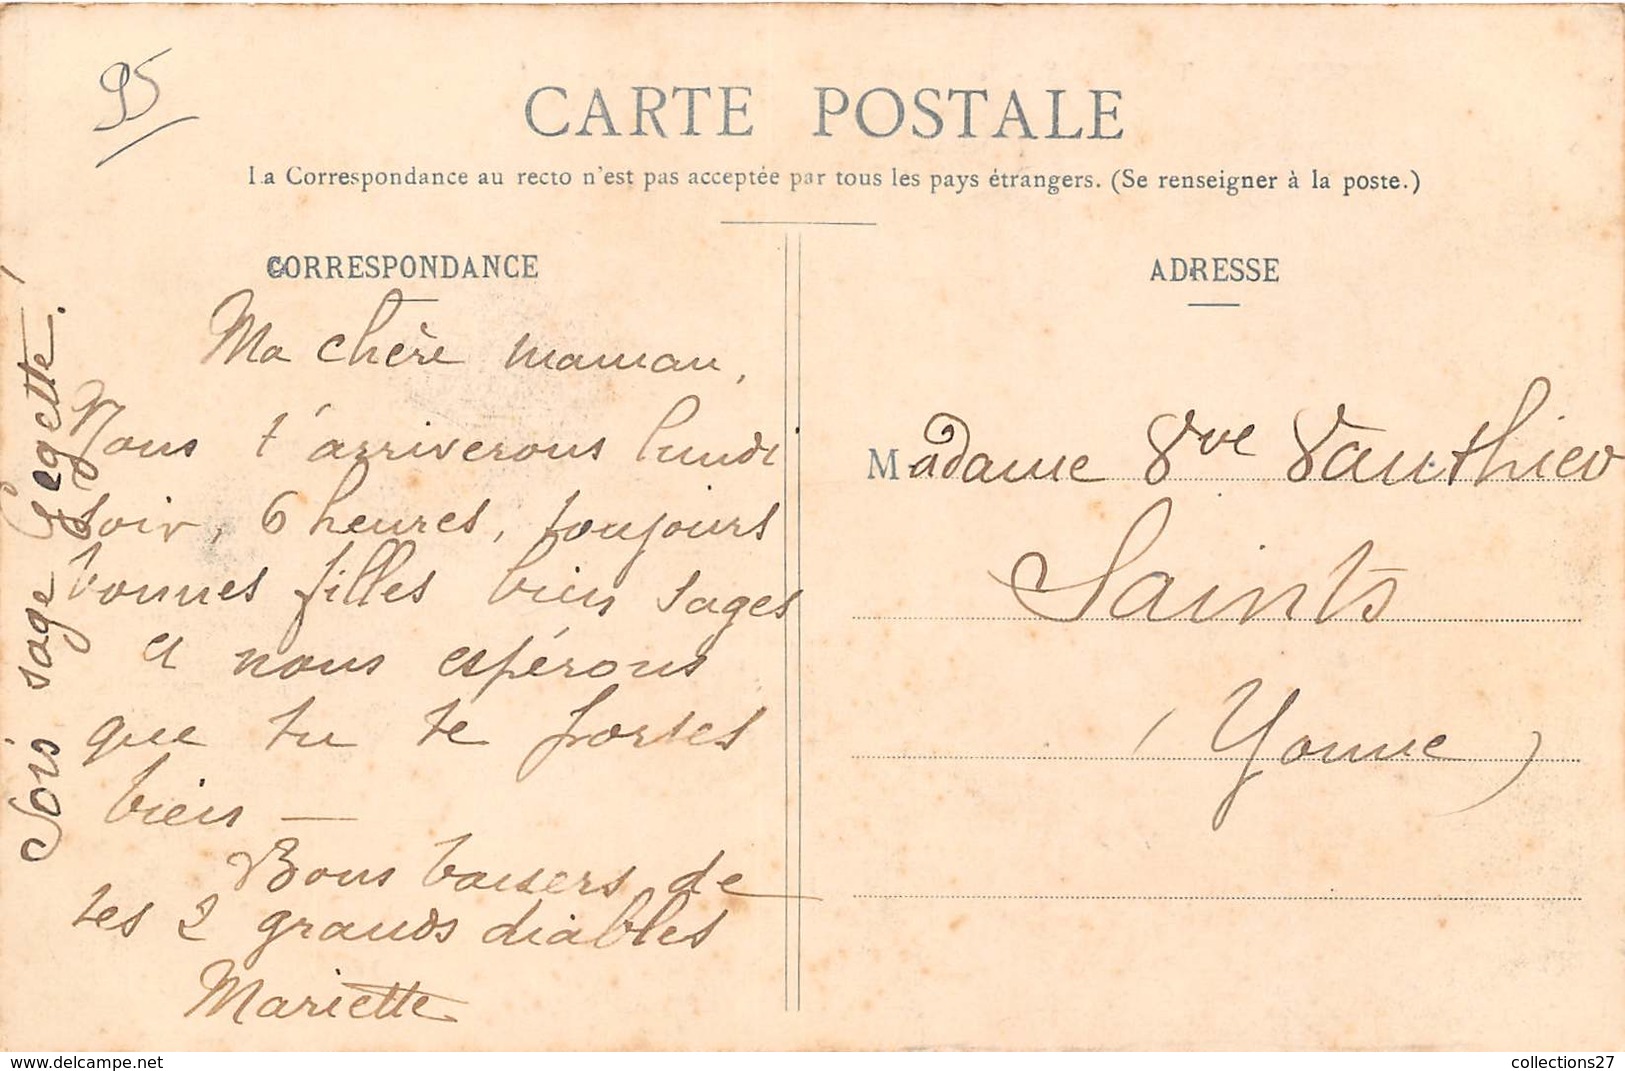 95
CARTE POSTALE
La Correspondance au recto n'est pas acceptée par tous les pays étrangers. (Se renseigner à la poste.)
CORRESPONDANCE
Ma chère maman,
Nous t'arriverons lundi
soir, 6 heures, toujours
bonnes filles bien sages
et nous espérons
que tu te portes
bien —
Bons baisers de
tes 2 grands diables
Mariette
Sois sage Gegette!
ADRESSE
Madame Vve Vauthier
Saints
(Yonne)
delcampe.net
collections27